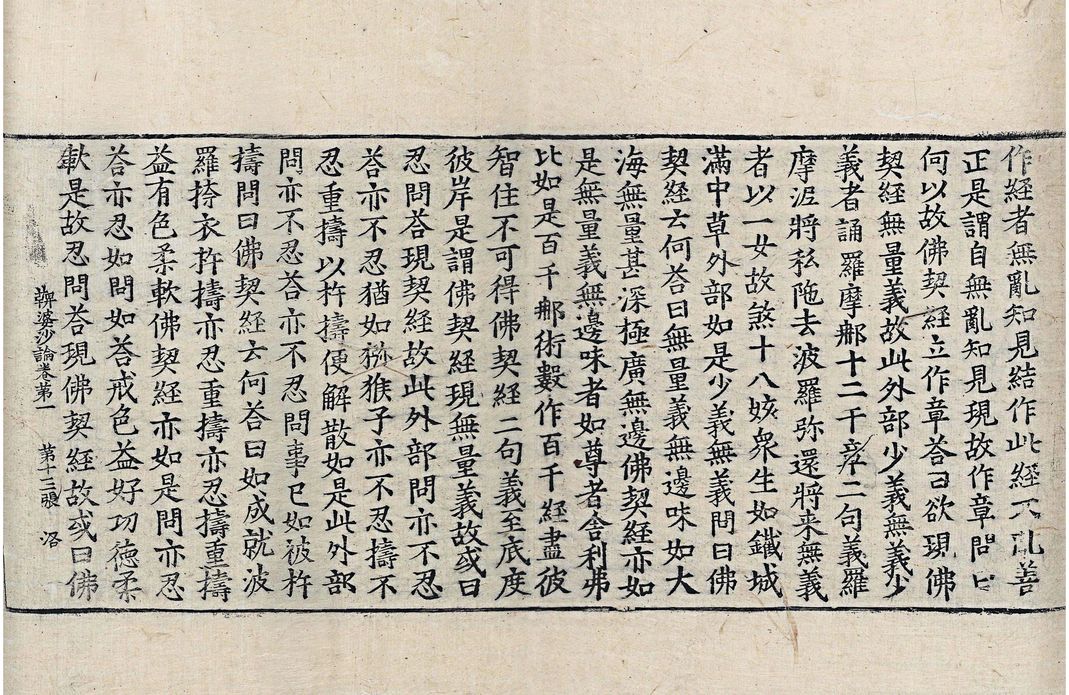 作經者無亂知見結作此經不亂善
正是謂自無亂知見現故作章問曰
何以故佛契經立作章荅曰欲現佛
契經無量義故此外部少義無義少
義者誦羅摩那十二千章二句義羅
摩泥將私陁去波羅弥還將来無義
者以一女故煞十八姟衆生如鐵城
滿中草外部如是少義無義問曰佛
契經云何荅曰無量義無邊味如大
海無量甚深極廣無邊佛契經亦如
是無量義無邊味者如尊者舍利弗
比如是百千那術數作百千經盡彼
智住不可得佛契經二句義至底度
彼岸是謂佛契經現無量義故或曰
忍問荅現契經故此外部問亦不忍
荅亦不忍猶如猕猴子亦不忍擣不
忍重擣以杵擣便解散如是此外部
問亦不忍荅亦不忍問事已如被杵
擣問曰佛契經云何荅曰如成就波
羅捺衣杵擣亦忍重擣亦忍擣重擣
益有色柔軟佛契經亦如是問亦忍
荅亦忍如問如荅戒色益好功德柔
軟是故忍問荅現佛契經故或曰佛
鞞婆沙論卷第一 第十三張 洛